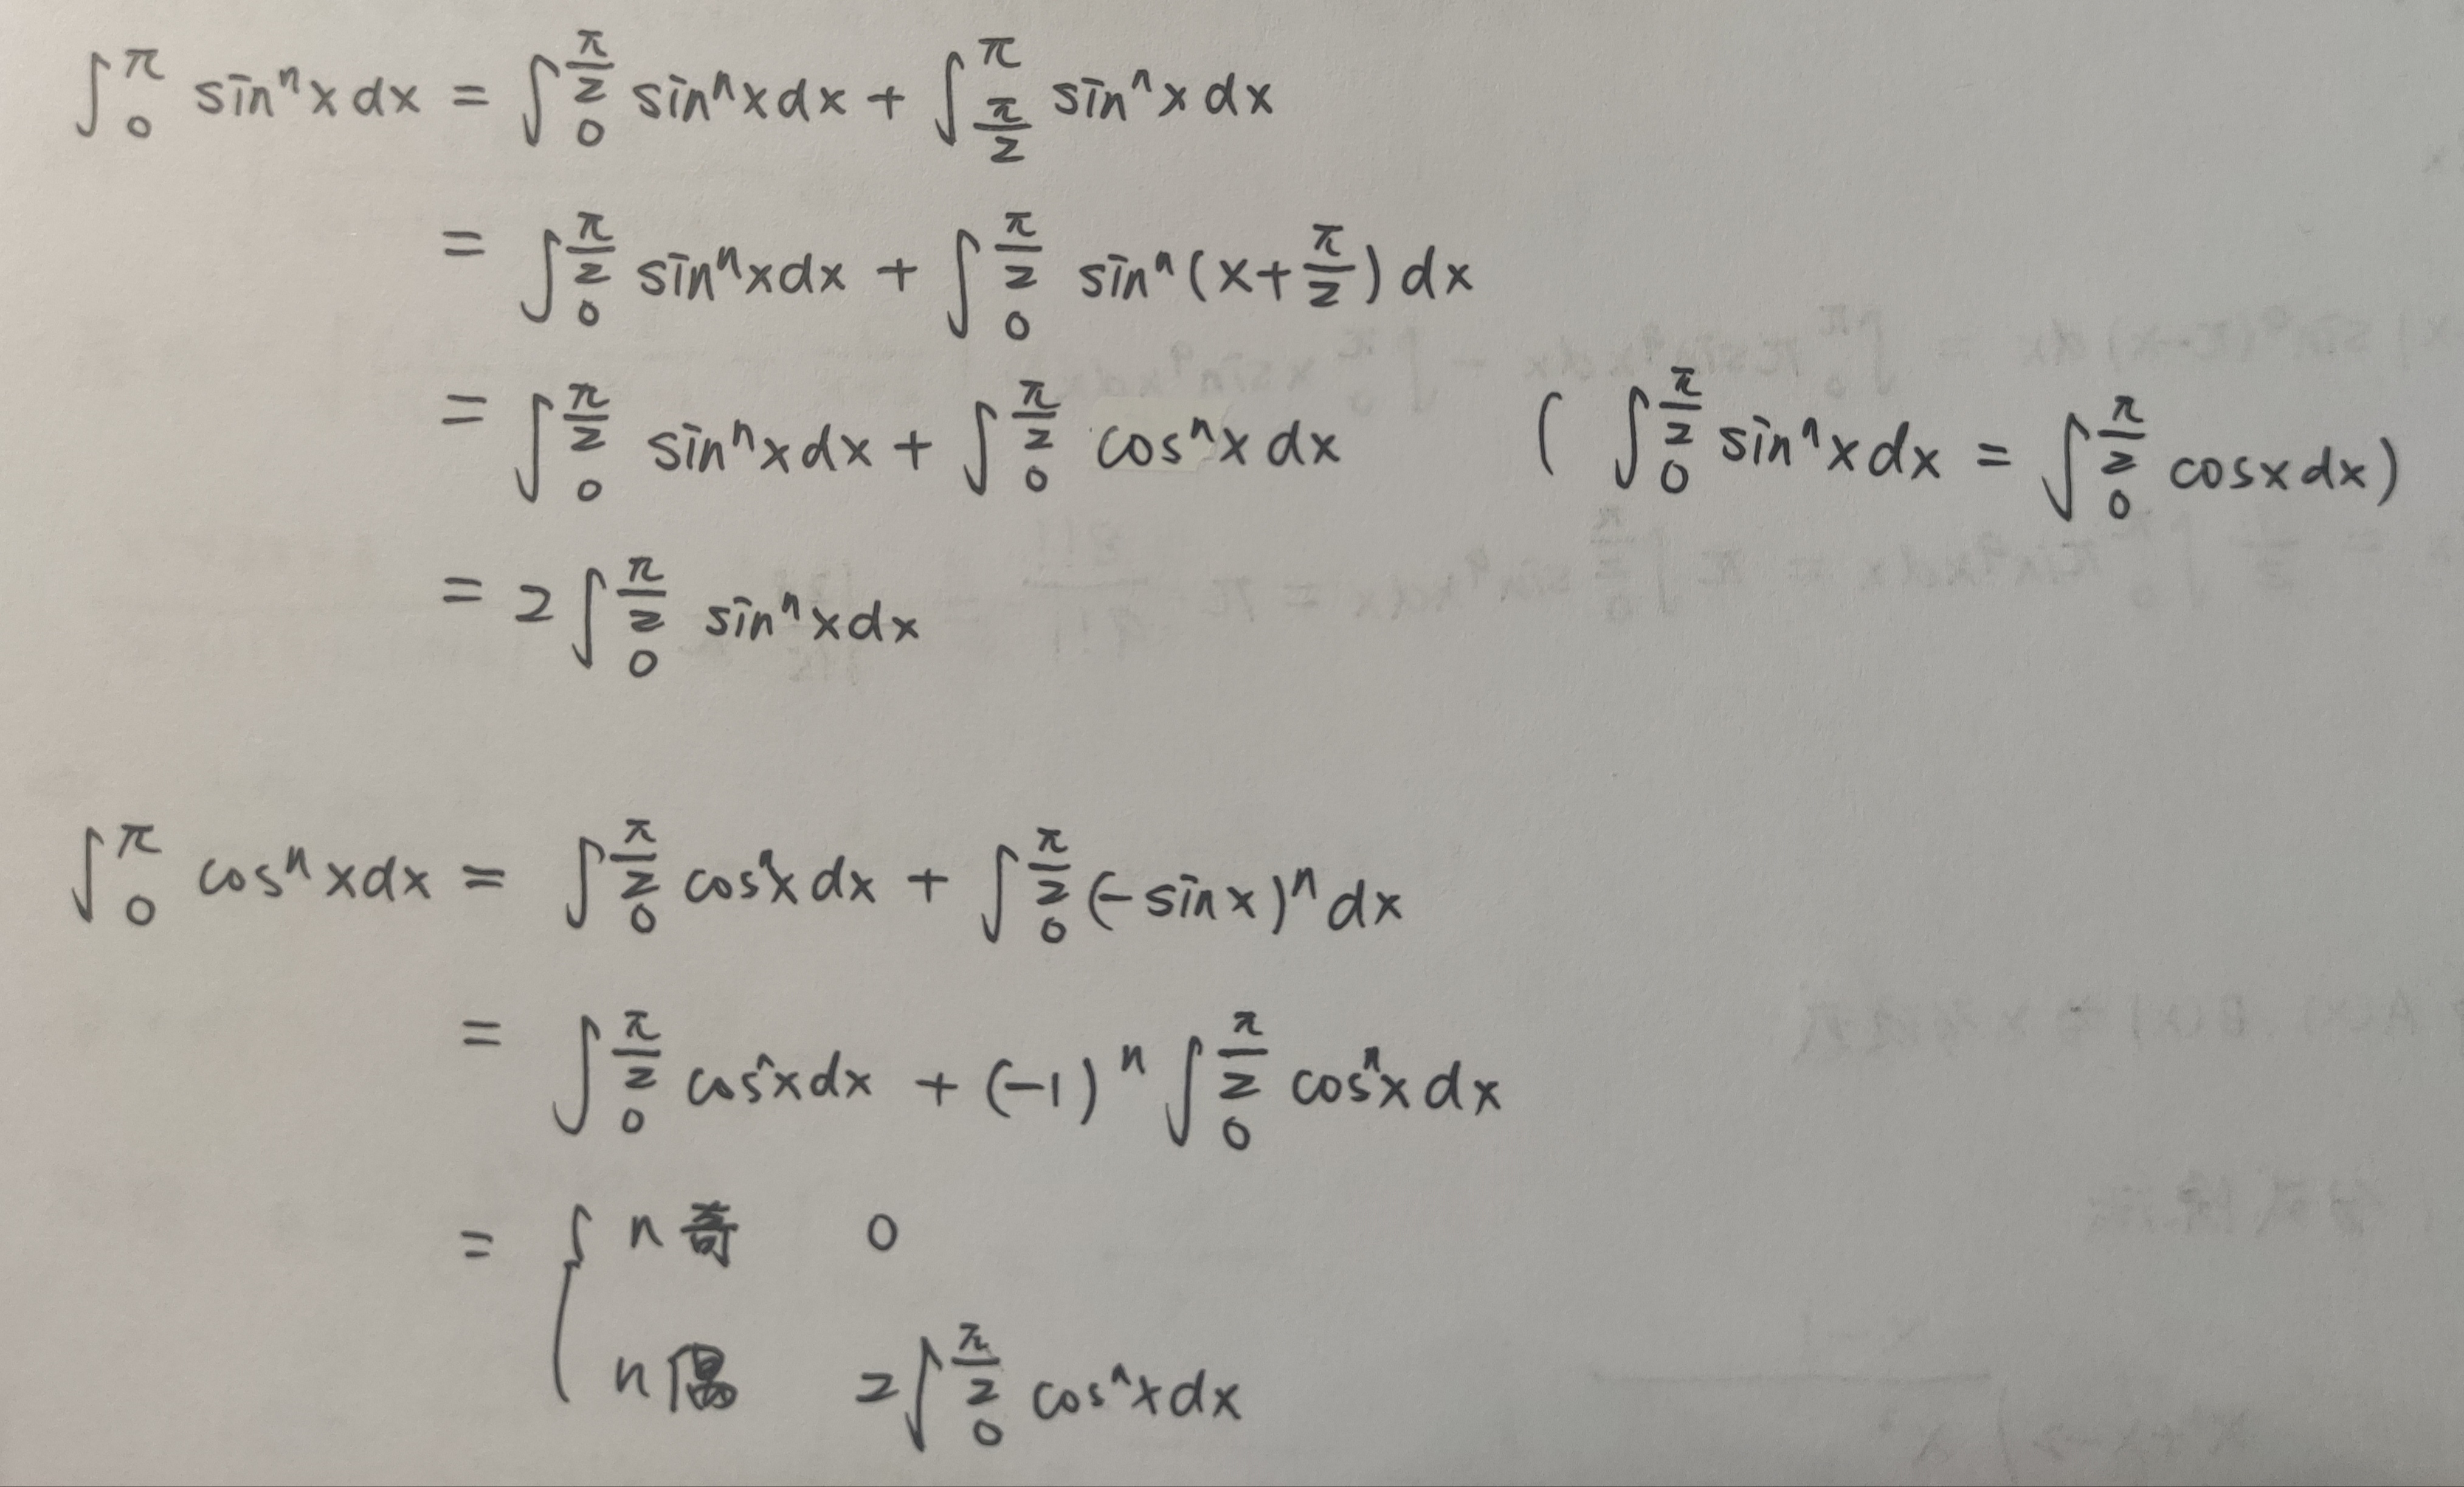 ∫₀^π sinⁿx dx = ∫₀^{π/2} sinⁿx dx + ∫_{π/2}^π sinⁿx dx
= ∫₀^{π/2} sinⁿx dx + ∫₀^{π/2} sinⁿ(x+π/2) dx
= ∫₀^{π/2} sinⁿx dx + ∫₀^{π/2} cosⁿx dx ( ∫₀^{π/2} sinⁿx dx = ∫₀^{π/2} cosx dx)
= 2∫₀^{π/2} sinⁿx dx
∫₀^π cosⁿx dx = ∫₀^{π/2} cosⁿx dx + ∫₀^{π/2} (-sinx)ⁿ dx
= ∫₀^{π/2} cosⁿx dx + (-1)ⁿ ∫₀^{π/2} cosⁿx dx
= { n奇 0
n偶 2∫₀^{π/2} cosⁿx dx